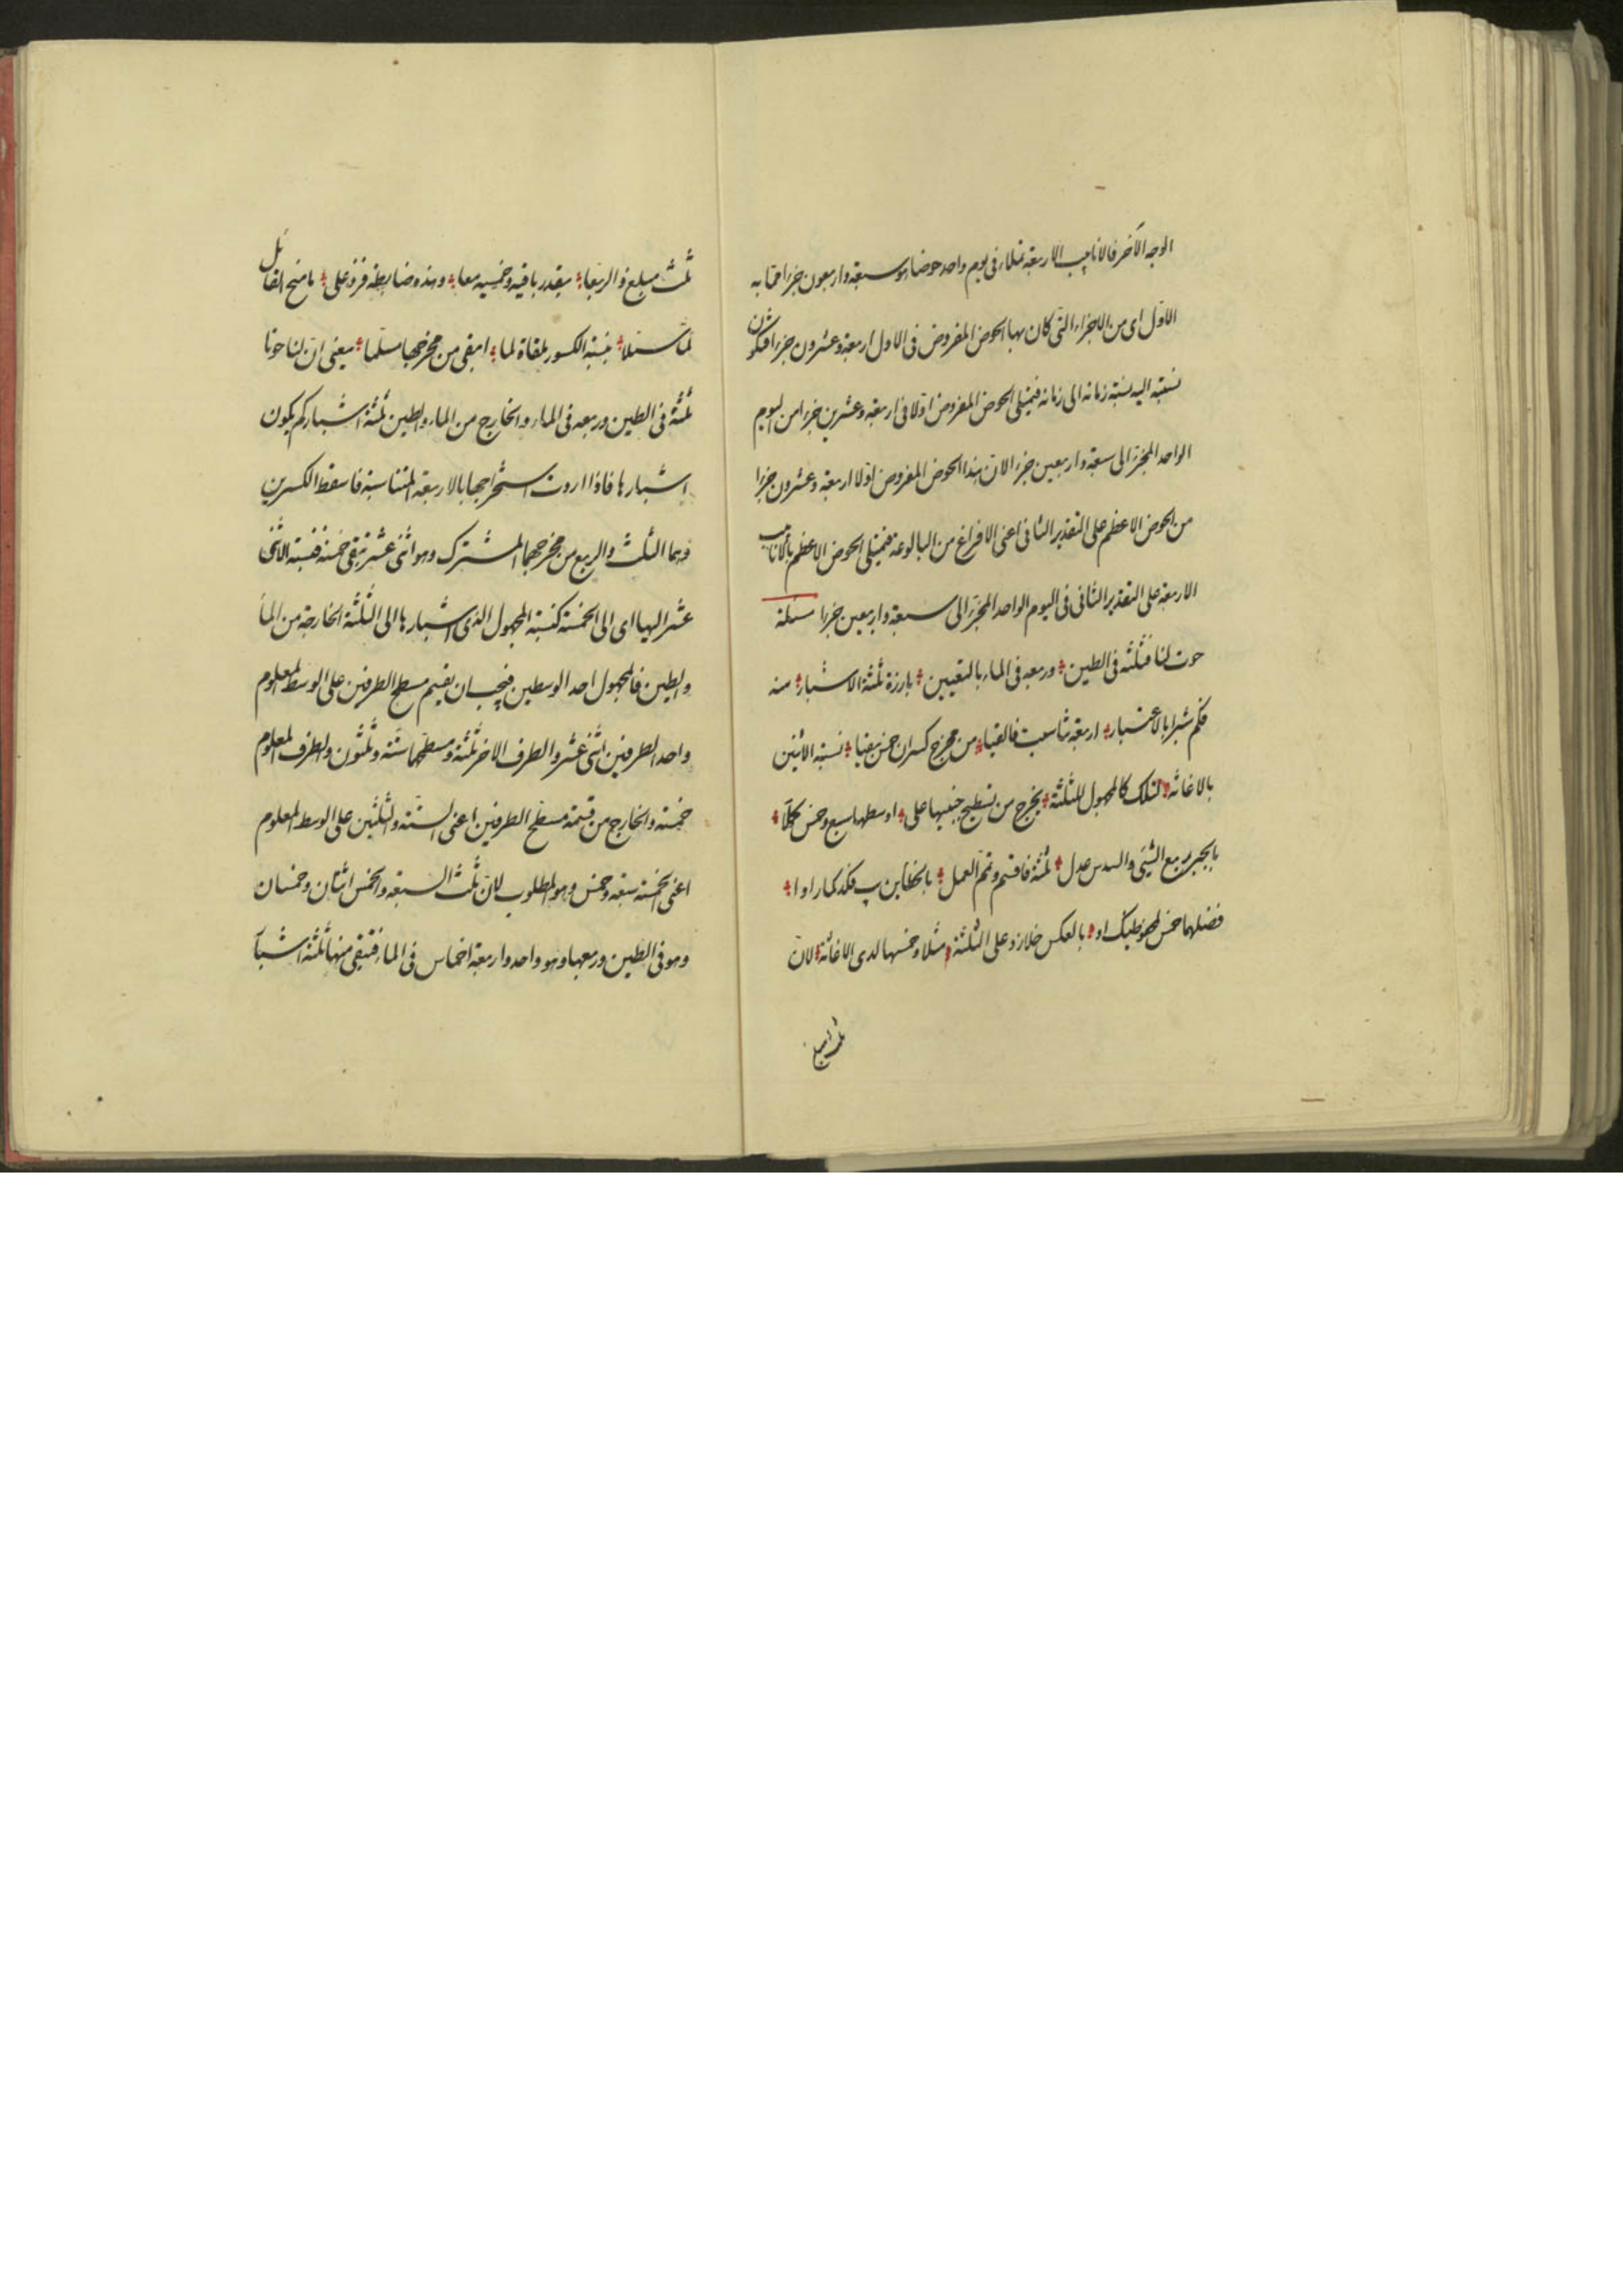 الوجه الآخر فالانابيب الاربعة تملاء فى يوم واحد حوضا هو سبعة واربعون جزءا مما به
الاول اى من الاجزاء التى كان بها الحوض المفروض فى الاول اربعة وعشرون جزءا فيكون
نسبته اليه نسبة زمانه الى زمانه فيمتلى الحوض المفروض اولا فى اربعة وعشرين جزءا من اليوم
الواحد المجزا الى سبعة واربعين جزءا لان هذا الحوض المفروض اولا اربعة وعشرون جزءا
من الحوض الاعظم على التقدير الثانى اعنى الافراغ من البالوعة فيمتلى الحوض الاعظم بالانابيب
الاربعة على التقدير الثانى فى اليوم الواحد المجزا الى سبعة واربعين جزءا مسئلة
حوت لنا فثلثه فى الطين وربعه فى الماء بالتعيين بارزة ثلثة الاشبار منه
فكم شبرا بالاعتبار اربعة تناسبت فالقيا من مخرج كسران خمس بقيا نسبة الاثنين
بالاغاثه لتلك كالمجهول للثلثة يخرج من تسطيح جنبيها على اوسطها سبع وخمس كملا
بالجبر ربع الشيئ والسدس عدل ثلثة فاقسم وتم العمل بالخطاين
فضلهما خمس بالعكس خلا زد على الثلثة مثلا وخمسها لدى الاغاثة لان
ثلث مبلغ
ثلث مبلغ ذا الربعا بقدر باقيه وخمسيه معا وهذه ضابطة فزد على
لما سئلا نسبة الكسور ملقاة لما ابقى من مخرجها مسلما يعنى ان لنا حوتا
ثلثه فى الطين وربعه فى الماء والخارج من الماء والطين ثلثة اشبار كم يكون
اشبارها فاذا اردت استخراجها بالاربعة المتناسبة فاسقط الكسرين
وهما الثلث والربع من مخرجهما المشترك وهو اثنى عشر تبقى خمسة فنسبة الاثنى
عشر اليها اى الى الخمسة كنسبة المجهول الذى اشبارها الى الثلثة الخارجة من الماء
والطين فالمجهول احد الوسطين فيجب ان يقسم مسطح الطرفين على الوسط المعلوم
واحد الطرفين اثنى عشر والطرف الاخر ثلثة ومسطحهما ستة وثلثون والطرف المعلوم
خمسة والخارج من قسمة مسطح الطرفين اعنى الستة والثلثين على الوسط المعلوم
اعنى الخمسة سبعة وخمس وهو المطلوب لان ثلث السبعة والخمس اثنان وخمسان
وهو فى الطين وربعها وهو واحد واربعة اخماس فى الماء فتبقى منها ثلثة اشبار